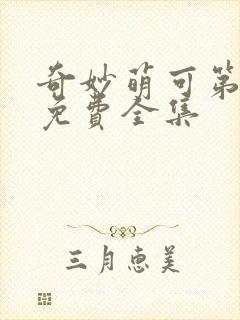 奇妙萌可第
免費全集
三月惠美